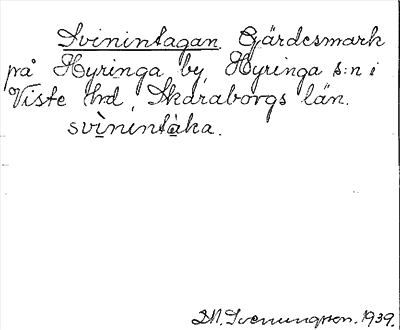 Svinintagan. Gärdesmark
på Hyringa by, Hyringa s:n i
Viste hrd, Skaraborgs län.
svìnintàka.
M. Svenungsson. 1939.